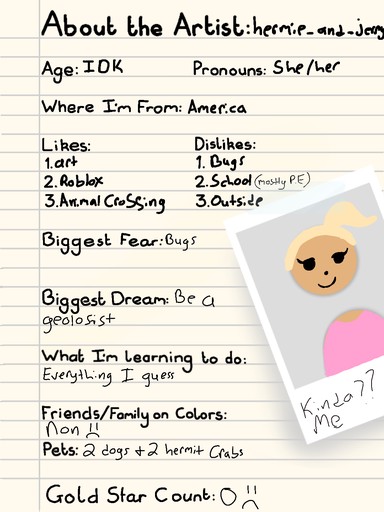 About the Artist:hermie_and_jerry
Age: IDK Pronouns: She/her
Where I'm From: America
Likes: Dislikes:
1.art 1. Bugs
2.Roblox 2.School (mostly P.E)
3.Animal Crossing 3.Outside
Biggest Fear:Bugs
Biggest Dream: Be a
geologist
What I'm learning to do:
Everything I guess
Friends/Family on Colors:
Non :(
Pets: 2 dogs + 2 hermit Crabs
Gold Star Count: 0 :(
Kinda??
Me